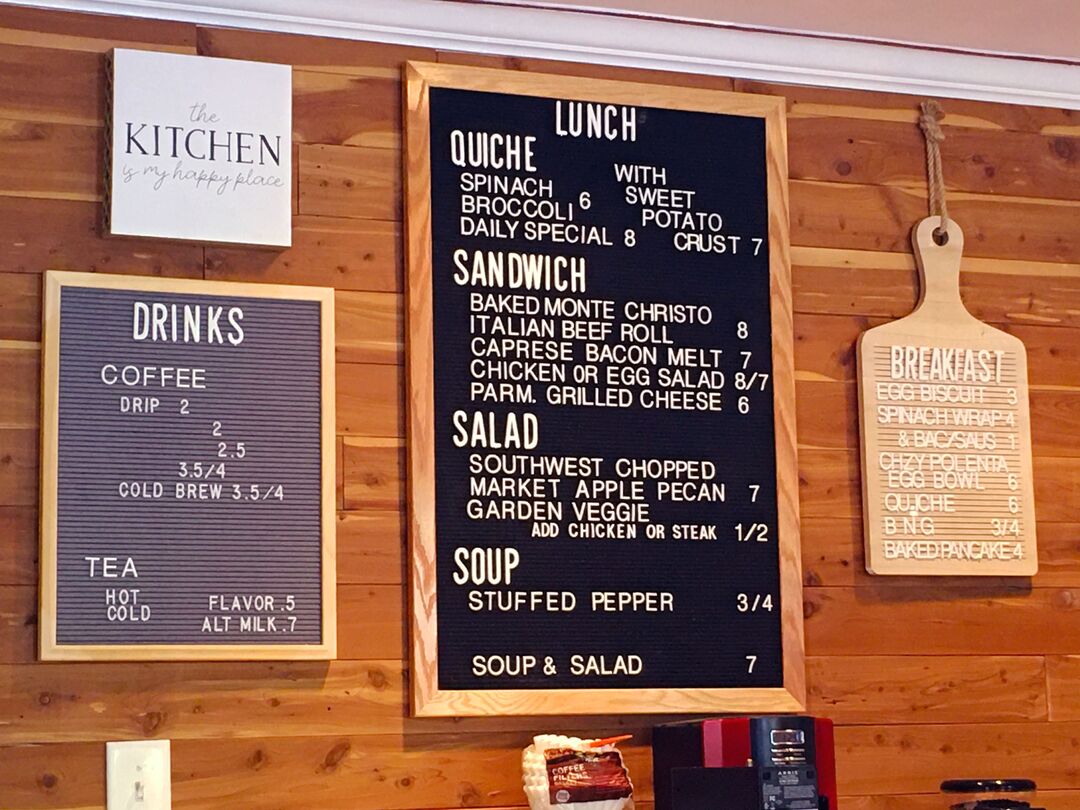 the
KITCHEN
is my happy place
DRINKS
COFFEE
DRIP 2
2
2.5
3.5/4
COLD BREW 3.5/4
TEA
HOT
COLD
FLAVOR .5
ALT MILK .7
LUNCH
QUICHE
SPINACH
BROCCOLI 6
DAILY SPECIAL 8
WITH
SWEET
POTATO
CRUST 7
SANDWICH
BAKED MONTE CHRISTO
ITALIAN BEEF ROLL 8
CAPRESE BACON MELT 7
CHICKEN OR EGG SALAD 8/7
PARM. GRILLED CHEESE 6
SALAD
SOUTHWEST CHOPPED
MARKET APPLE PECAN 7
GARDEN VEGGIE
ADD CHICKEN OR STEAK 1/2
SOUP
STUFFED PEPPER 3/4
SOUP & SALAD 7
BREAKFAST
EGG BISCUIT 3
SPINACH WRAP 4
& BAC/SAUS 1
CHZY POLENTA
EGG BOWL 6
QUICHE 6
BNG 3/4
BAKED PANCAKE 4
COFFEE
FILTERS